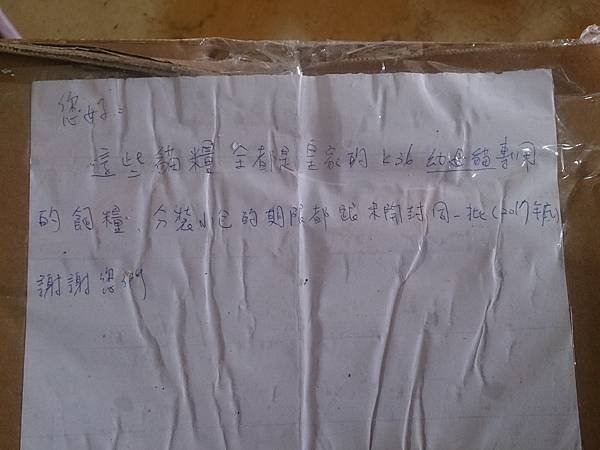 您好：
這些貓糧全都是皇家的 K36 幼母貓專用
的飼糧，分裝小包的期限都跟未開封同一批(2017年底)
謝謝您們